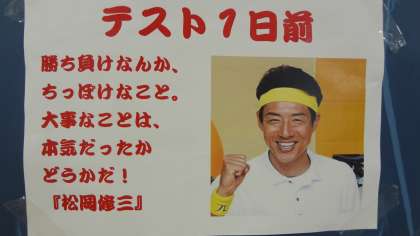 テスト1日前
勝ち負けなんか、
ちっぽけなこと。
大事なことは、
本気だったか
どうかだ！
『松岡修三』